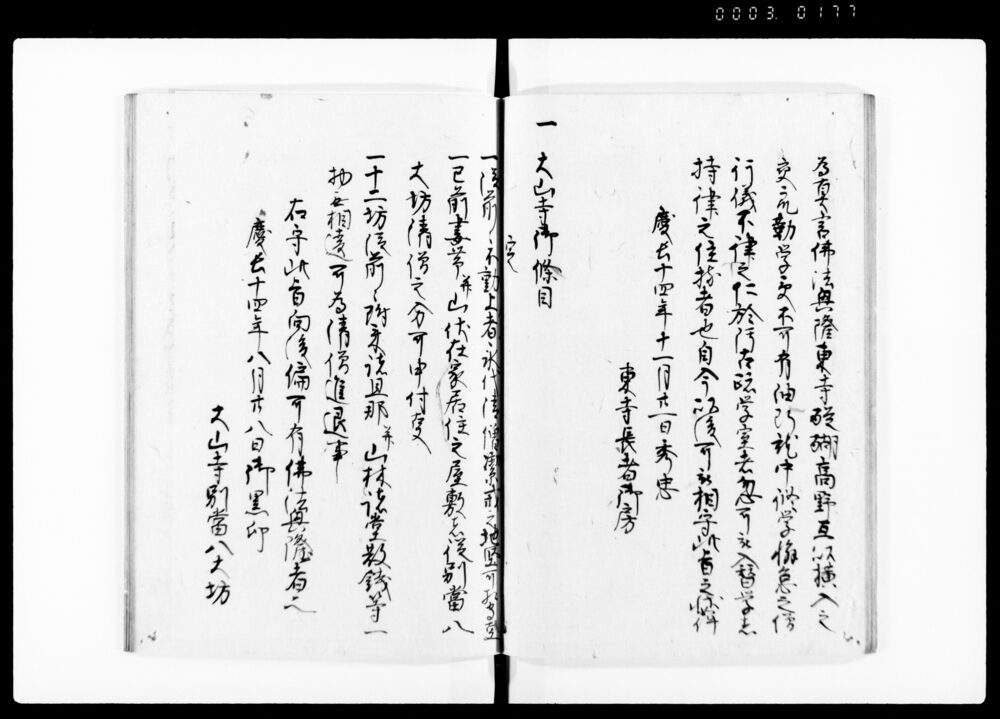 0003 0177
為真言佛法興隆東寺醍醐高野互以横入之
交衆勤学更不可有油断就中修学懈怠之僧
行儀不律之仁於占臨学室者急可被入替学志
持律之住持者也自今以後可被相守此旨之状件
慶長十四年十一月廿一日秀忠
東寺長者御房
一 大山寺御條目
定
一從前不動上者永代清僧之地堅可
一已前妻帯并山伏在家居住之屋敷者從別當八
大坊清僧之分可申付事
一十二坊從前之附来諸旦那并山林諸堂散銭等一
物無相違可為清僧進退事
右守此旨向後偏可有佛法興隆者也
慶長十四年八月廿八日御黒印
大山寺別當八大坊